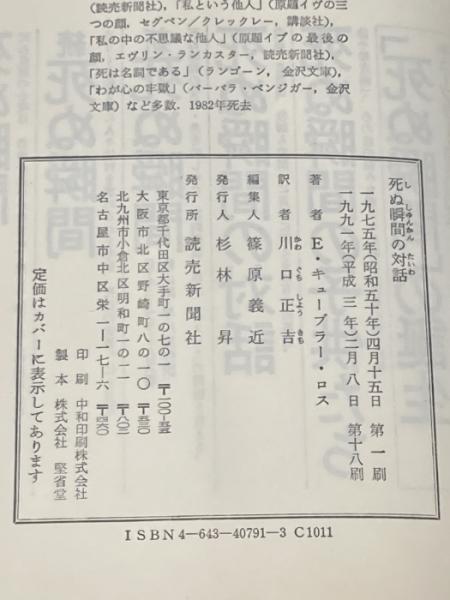 (読売新聞社),「私という他人」(原題イヴの三
つの顔, セグペン/クレックレー, 講談社),
「私の中の不思議な他人」(原題イブの最後の
顔, エヴリン・ランカスター, 読売新聞社),
「死は名詞である」(ランゴーン, 金沢文庫),
「わが心の牢獄」(バーバラ・ベンジガー, 金沢
文庫)など多数. 1982年死去
死ぬ瞬間の対話
し しゅんかん たいわ
一九七五年(昭和五十年)四月十五日 第一刷
一九九一年(平成三年)二月八日 第十八刷
著者 E・キューブラー・ロス
訳者 川口正吉
かわ ぐち しよう きち
編集人 篠原義近
発行人 杉林昇
発行所 読売新聞社
東京都千代田区大手町一の七の一 〒一〇〇-五五
大阪市北区野崎町八の一〇 〒五三〇
北九州市小倉北区明和町一の一一 〒八〇二
名古屋市中区栄一-一七-六 〒四六〇
印刷 中和印刷株式会社
製本 株式会社 堅省堂
定価はカバーに表示してあります
ISBN4-643-40791-3 C1011